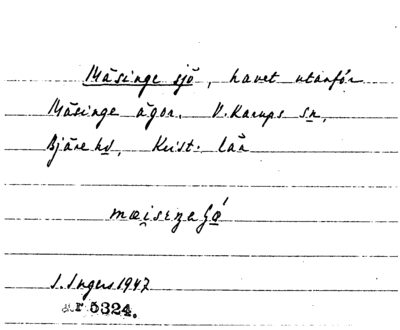 Mäsinge sjö, havet utanför
Mäsinge ägor. V. Karups sn,
Bjäre hd, Krist. län
I. Ingers 1947
a r 5324.